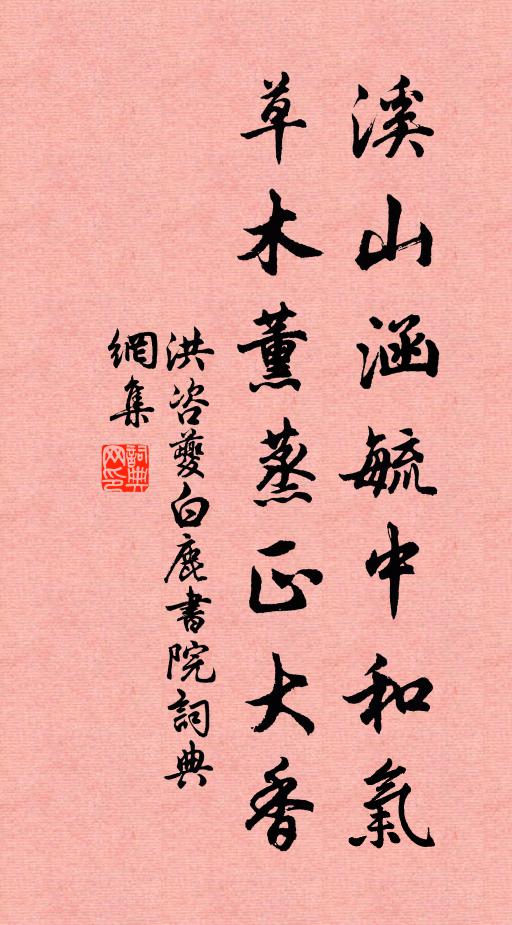 溪山涵毓中和氣
草木薰蒸正大香
洪咨夔白鹿書院詞典
網集
詞典
网印